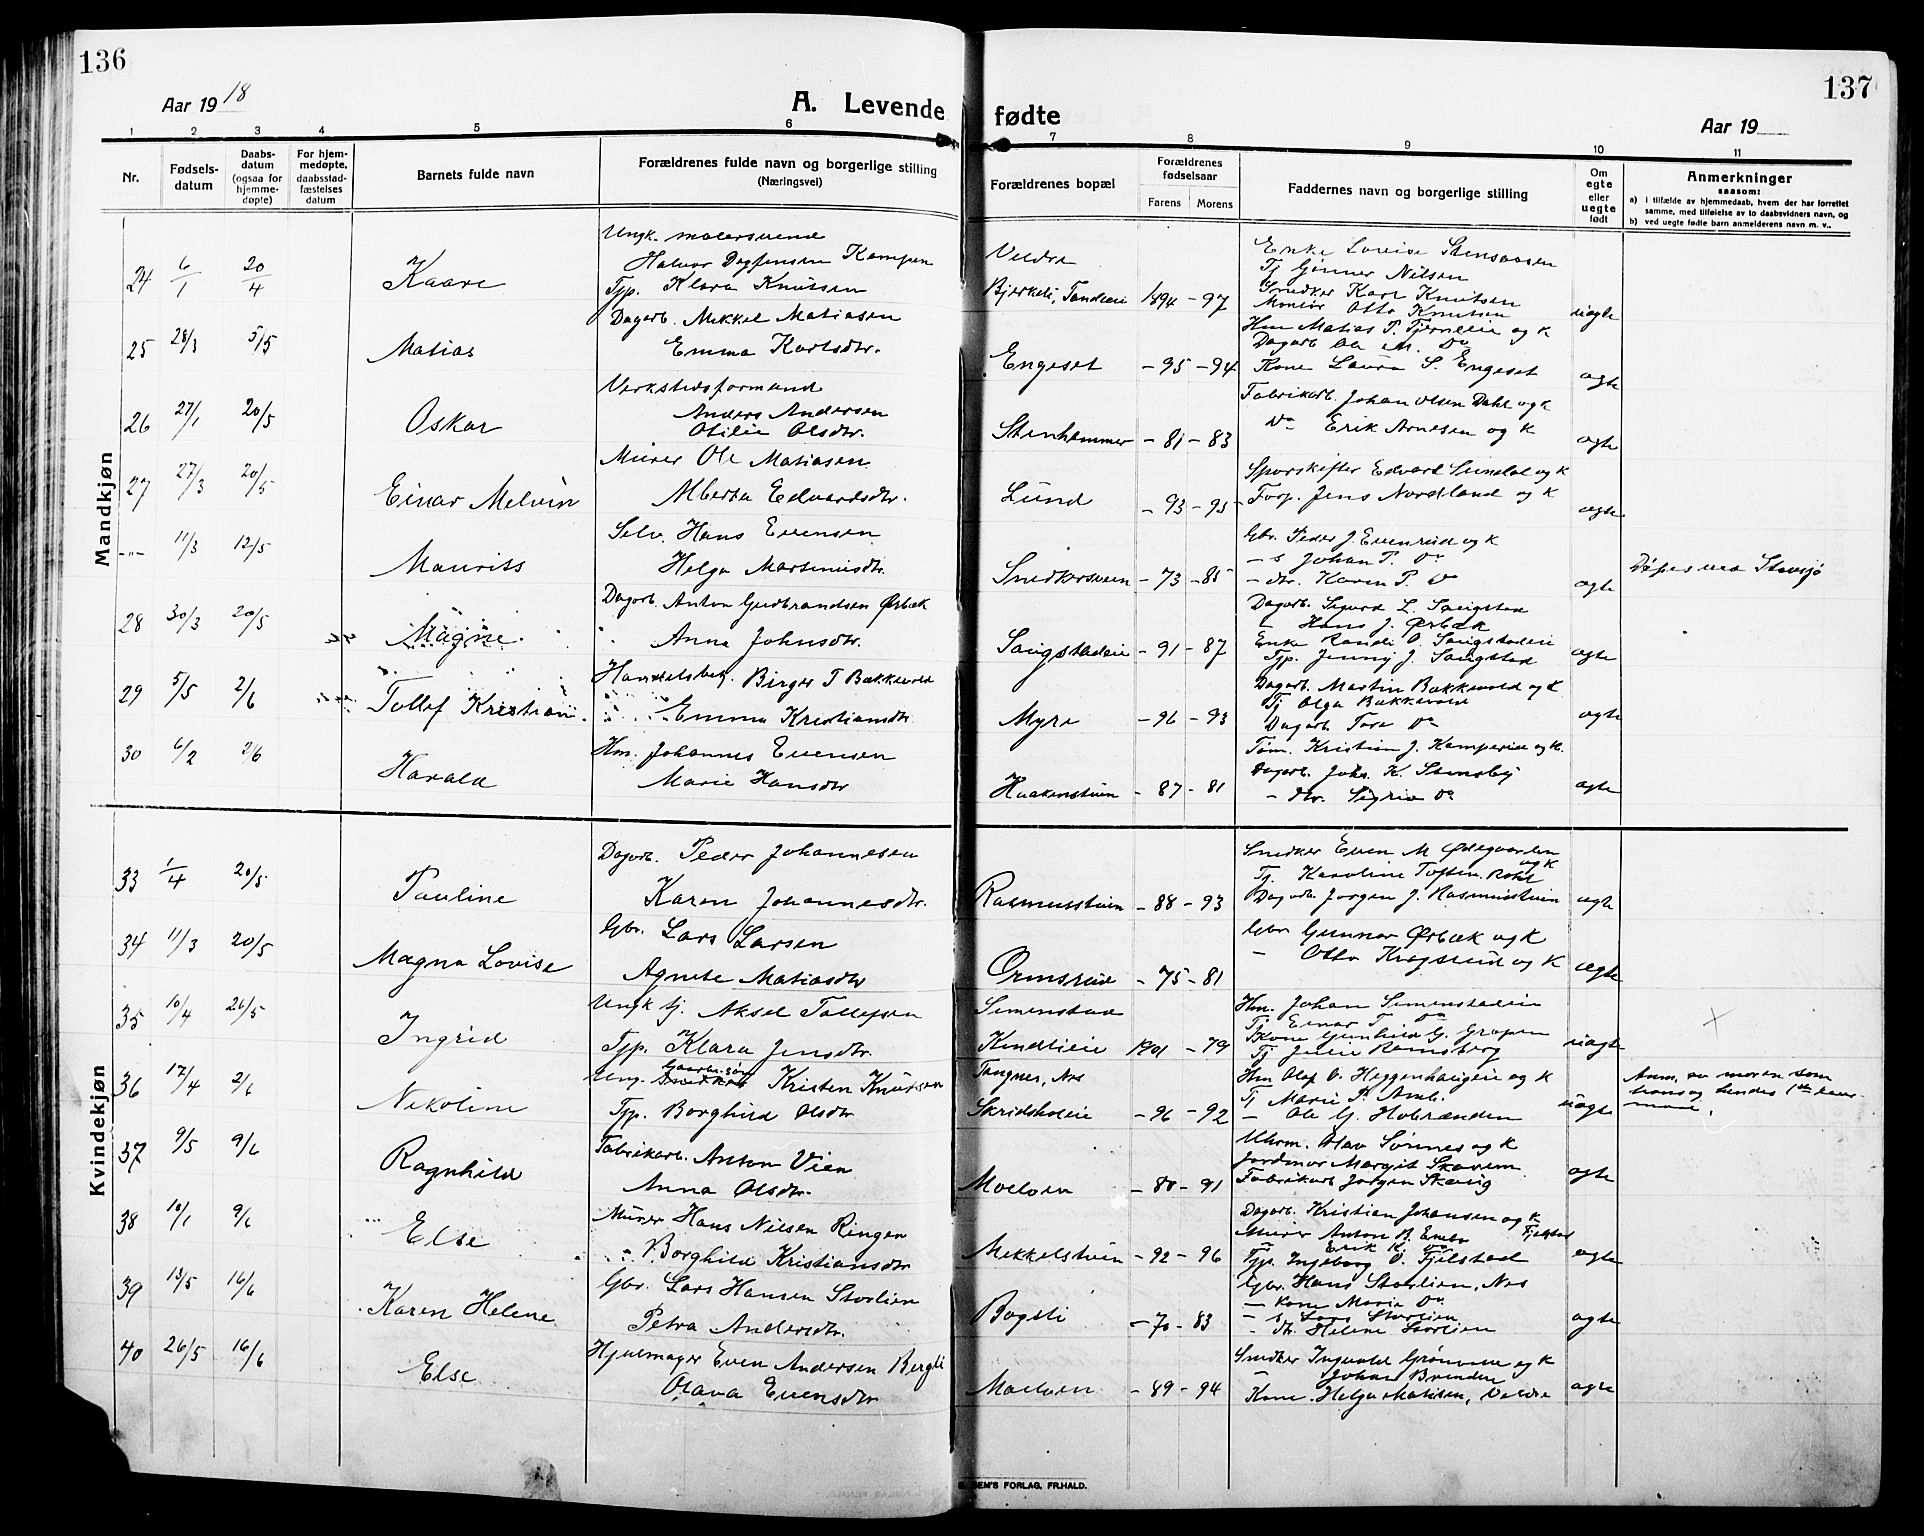 136
Aar 1918
A. Levende
1 2 3 4 5 6
Nr.
Fødsels-
datum
Daabs-
datum
(ogsaa for
hjemme-
døpte)
For hjem-
medøpte,
daabsstad-
fæstelses
datum
Barnets fulde navn
Forældrenes fulde navn og borgerlige stilling
(Næringsvei)
Mandkjøn
24 6/1 20/4 Kaare
Ungk. malersvend
Halvor Dagfinsen Kampen
Tjp. Klara Knutsen
25 28/3 5/5 Matias
Dagarb. Mikkel Matiasen
Emma Karlsdtr.
26 27/1 20/5 Oskar
Verkstedsformand
Anders Andersen
Otilie Olsdtr.
27 27/3 20/5 Einar Melvin
Murer Ole Matiasen
Alberta Edvardsdtr.
-"- 11/3 12/5 Maurits
Selv. Hans Evensen
Helga Martinusdtr.
28 30/3 20/5 Magne
Dagarb. Anton Gudbrandsen Ørbæk
Anna Johnsdtr.
29 5/5 2/6 Tollef Kristian
Handelsbetj. Birger T Bækkevold
Emma Kristiansdtr
30 6/2 2/6 Harald
Hm. Johannes Evensen
Marie Hansdtr
Kvindekjøn
33 1/4 20/5 Pauline
Dagarb. Peder Johannesen
Karen Johannesdtr.
34 11/3 20/5 Magna Lovise
Gbr. Lars Larsen
Agnete Matiasdtr
35 10/4 26/5 Ingrid
Ungk tj. Aksel Tollefsen
Tjp. Klara Jensdtr.
36 17/4 2/6 Nikoline
Ung. Gaardbr.søn Kristen Knutsen
Tjp. Borghild Olsdtr
37 9/5 9/6 Ragnhild
Fabrikarb. Anton Vien
Anna Olsdtr.
38 10/1 9/6 Else
Murer Hans Nilsen Ringen
Borghild Kristiansdtr
39 13/5 16/6 Karen Helene
Gbr. Lars Hansen Storlien
Petra Andersdtr.
40 26/5 16/6 Else
Hjulmager Even Andersen Bergli
Olava Evensdtr
137
fødte
Aar 19
7 8 9 10 11
Forældrenes bopæl
Forældrenes
fødselsaar
Farens Morens
Faddernes navn og borgerlige stilling
Om
egte
eller
uegte
født
Anmerkninger
saasom:
a) i tilfælde av hjemmedaab, hvem der har forrettet
samme, med tilføielse av to daabsvidners navn, og
b) ved uegte fødte barn anmelderens navn m. v..
Veldre
Bjerkeli, Tandeie 1894 - 97
Enke Lovise Stensaasen
Tj Gunner Nilsen
Snedker Karl Knutsen
Montør Otto Knutsen
uegte
Engeset - 95 - 94
Hm Matias P. Tjerneie og K
Dagarb Ole M. Do
Kone Laura S. Engeset
egte
Stenhammer - 81 - 83
Fabrikarb. Johan Olsen Dahl og K
Do Erik Arnesen og K
egte
Lund - 93 - 95
Sporskifter Edvard Sundal og K
Forp. Jens Nordland og K
egte
Snedkersveen - 73 - 85
Gbr. Peder J. Evenrud og K
- s Johan P. Do
- dtr. Karen P. Do
egte
Døpes ved Stavsjø
Saugstadeie - 91 - 87
Dagarb. Sigurd L. Saugstad
- Hans J. Ørbæk
Enke Randi O. Saugstadeie
Tjp. Jenny J. Saugstad
egte
Myre - 96 - 93
Dagarb. Martin Bækkevold og K
Tj Olga Bækkevold
Dagarb. Tore Do
egte
Haakenstuen - 87 - 81
Tøm. Kristian J. Kamperud og K.
Dagarb. Johs. K. Stensby
- dtr. Sigrid Do
egte
Rasmusstuen - 88 - 93
Snedker Even M Ødegaarden
og K
Tj. Karoline Toften
Dagarb. Jørgen J. Rasmusstuen
egte
Ormsrud - 75 - 81
Gbr Gunnar Ørbæk og K
- Otto Krogsrud og K
egte
Simenstad
Kindlieie 1901 - 79
Hm. Johan Simenstadeie
Tj Einar T Do
Kone Gunhild G. Gropen
Tj Julie Ramsberg
uegte
Tangnes, Nes
Skridsholeie - 96 - 92
Hm Olaf O. Heggenhaugeie og K
Tj Marie P. Amb.
- Ole G. Hobrænden
uegte
Anm. av moren som
Moelven - 80 - 91
Olav Sønnes og K
Jordmor Margit Skavern
Fabrikarb Jørgen Skavig
egte
Mekkelstuen - 92 - 96
Dagarb. Kristian Johansen og K
Murer Anton B. Embo
- Erik K. Do Fjelstad
Tjp. Ingeborg O. Fjelstad
egte
Bogsti - 70 - 83
Gbr. Hans Storlien, Nes
- Kone Marie Do
- s Lars Storlien
- dtr. Helene Storlien
egte
Moelven - 89 - 94
Snedker Ingvald Grønvold og K
- Johan Brenden
Kone Helga Matisen, Veldre
egte
SEM'S FORLAG, FR.HALD.